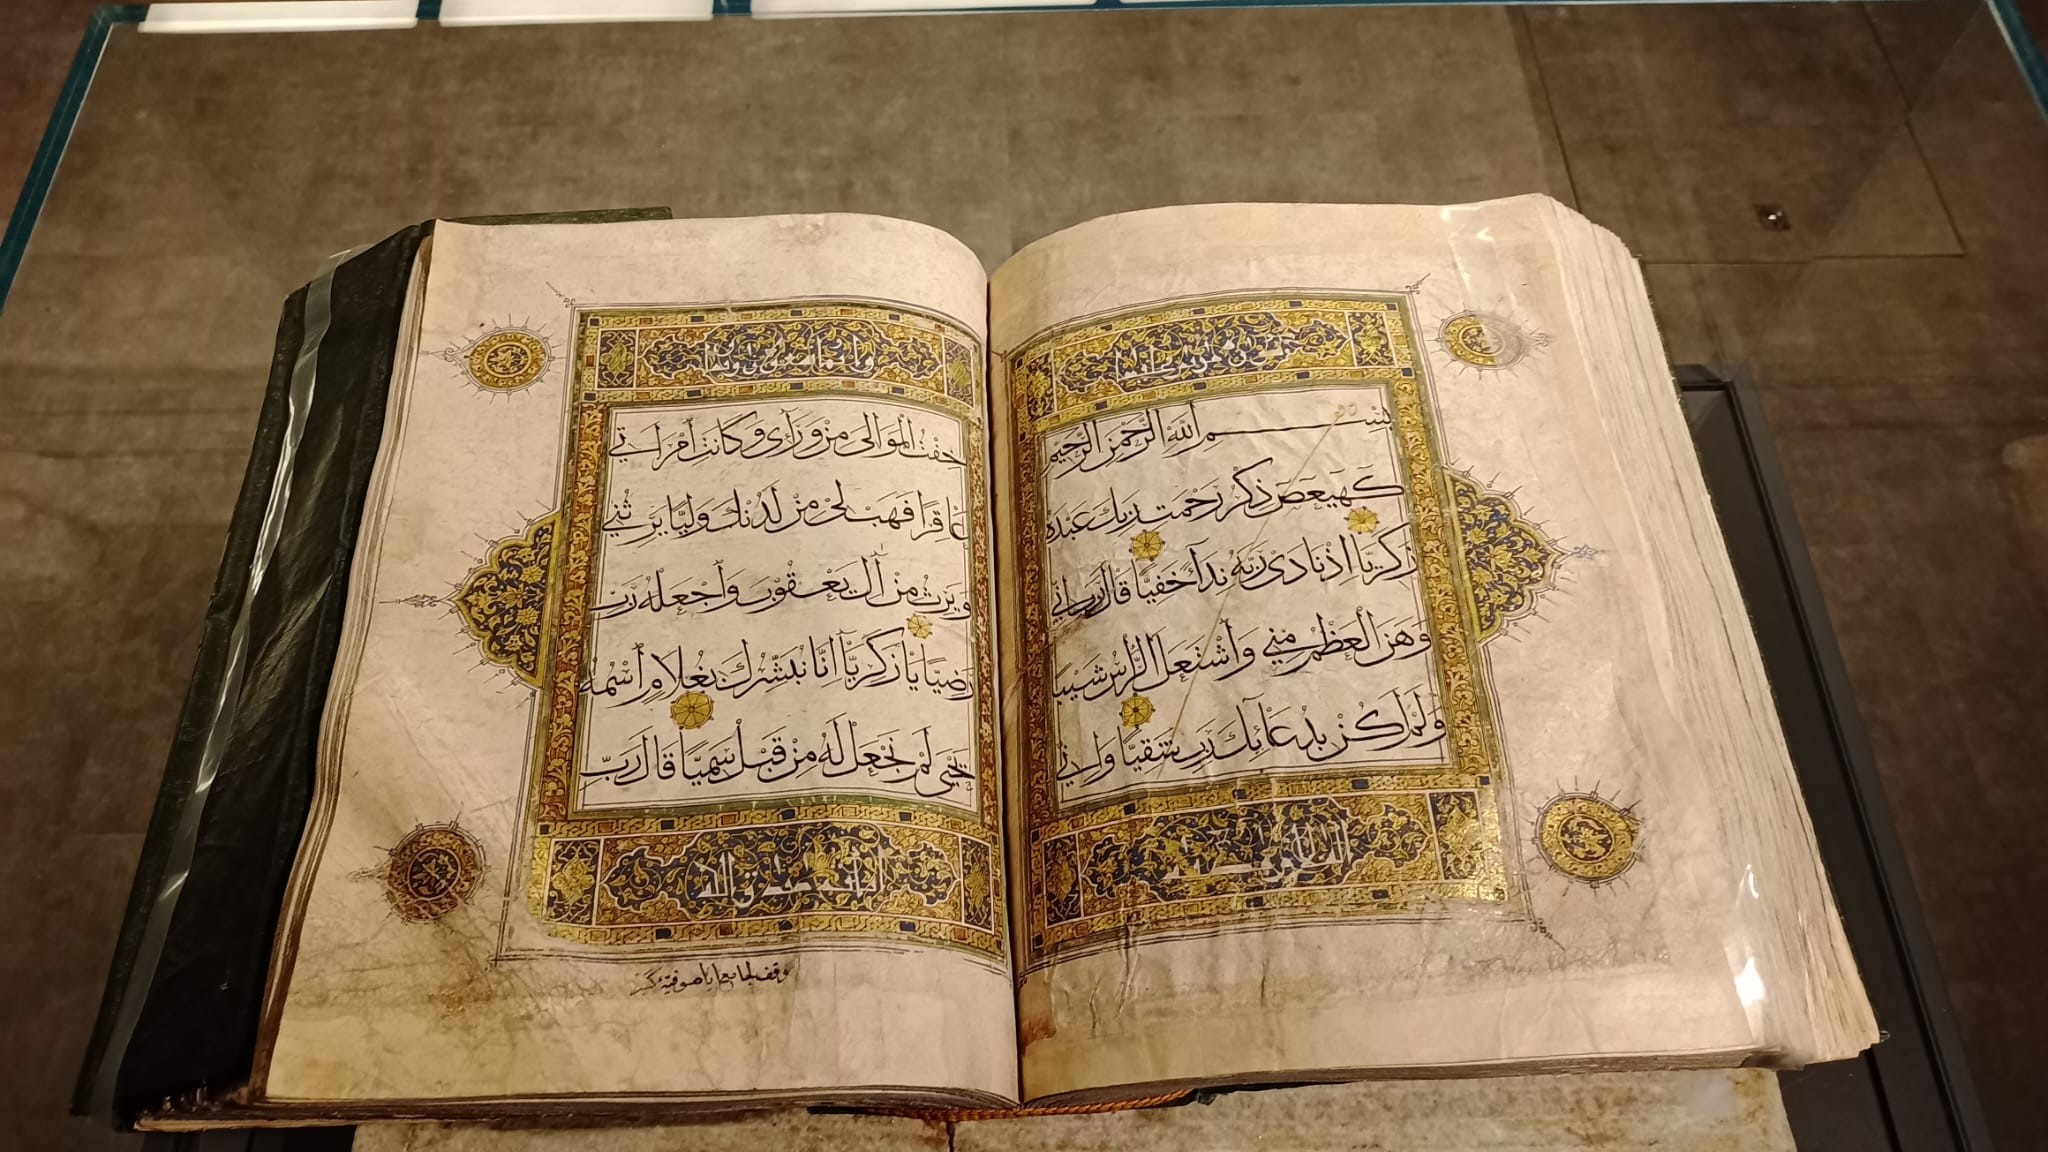 بسم الله الرحمن الرحيم
كهيعص ذكر رحمت ربك عبده
زكريا اذ نادى ربه نداء خفيا قال رب اني
وهن العظم مني واشتعل الرأس شيبا
ولم اكن بدعائك رب شقيا واني
خفت الموالي من وراءى وكانت امرأتي
عاقرا فهب لي من لدنك وليا يرثني
ويرث من آل يعقوب واجعله رب
رضيا يا زكريا انا نبشرك بغلام اسمه
يحيى لم نجعل له من قبل سميا قال رب
وقف لجامع اياصوفيه